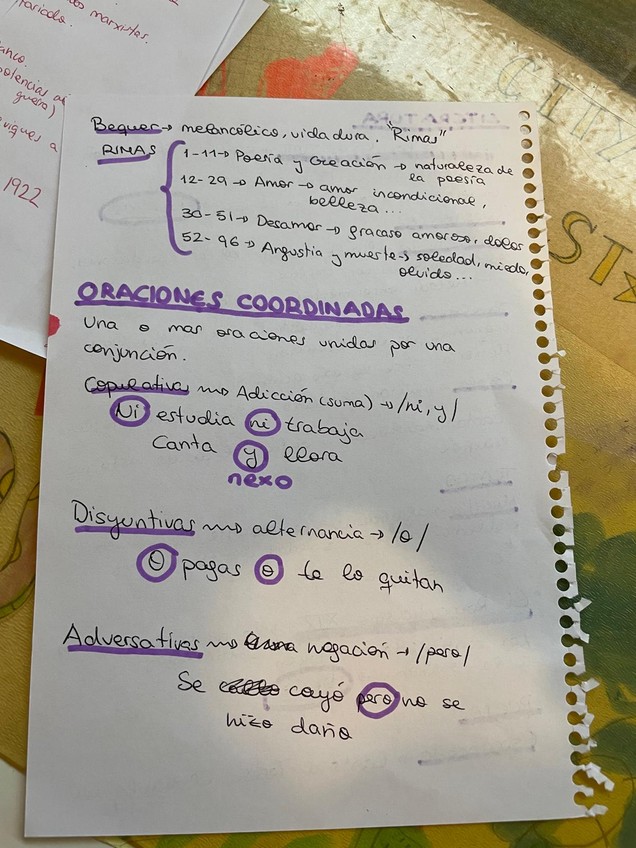 pariado.
marxistas.
anco.
potencias
guerra)
1922
CITY
LITERATURA
Bequer → melancólico, vida dura. "Rimas"
RIMAS
1-11 → Poesía y Creación → naturaleza de
la poesía
12-29 → Amor → amor incondicional,
belleza...
30-51 → Desamor → fracaso amoroso, dolor
52-96 → Angustia y muerte → soledad, miedo,
olvido...
ORACIONES COORDINADAS
Una o mas oraciones unidas por una
conjunción.
Copulativa → Adicción (suma) → /ni, y/
Ni estudia ni trabaja
Canta y llora
nexo
Disyuntivas → alternancia → /o/
O pagas o te lo quitan
Adversativas → negación → /pero/
Se cayó pero no se
hizo daño